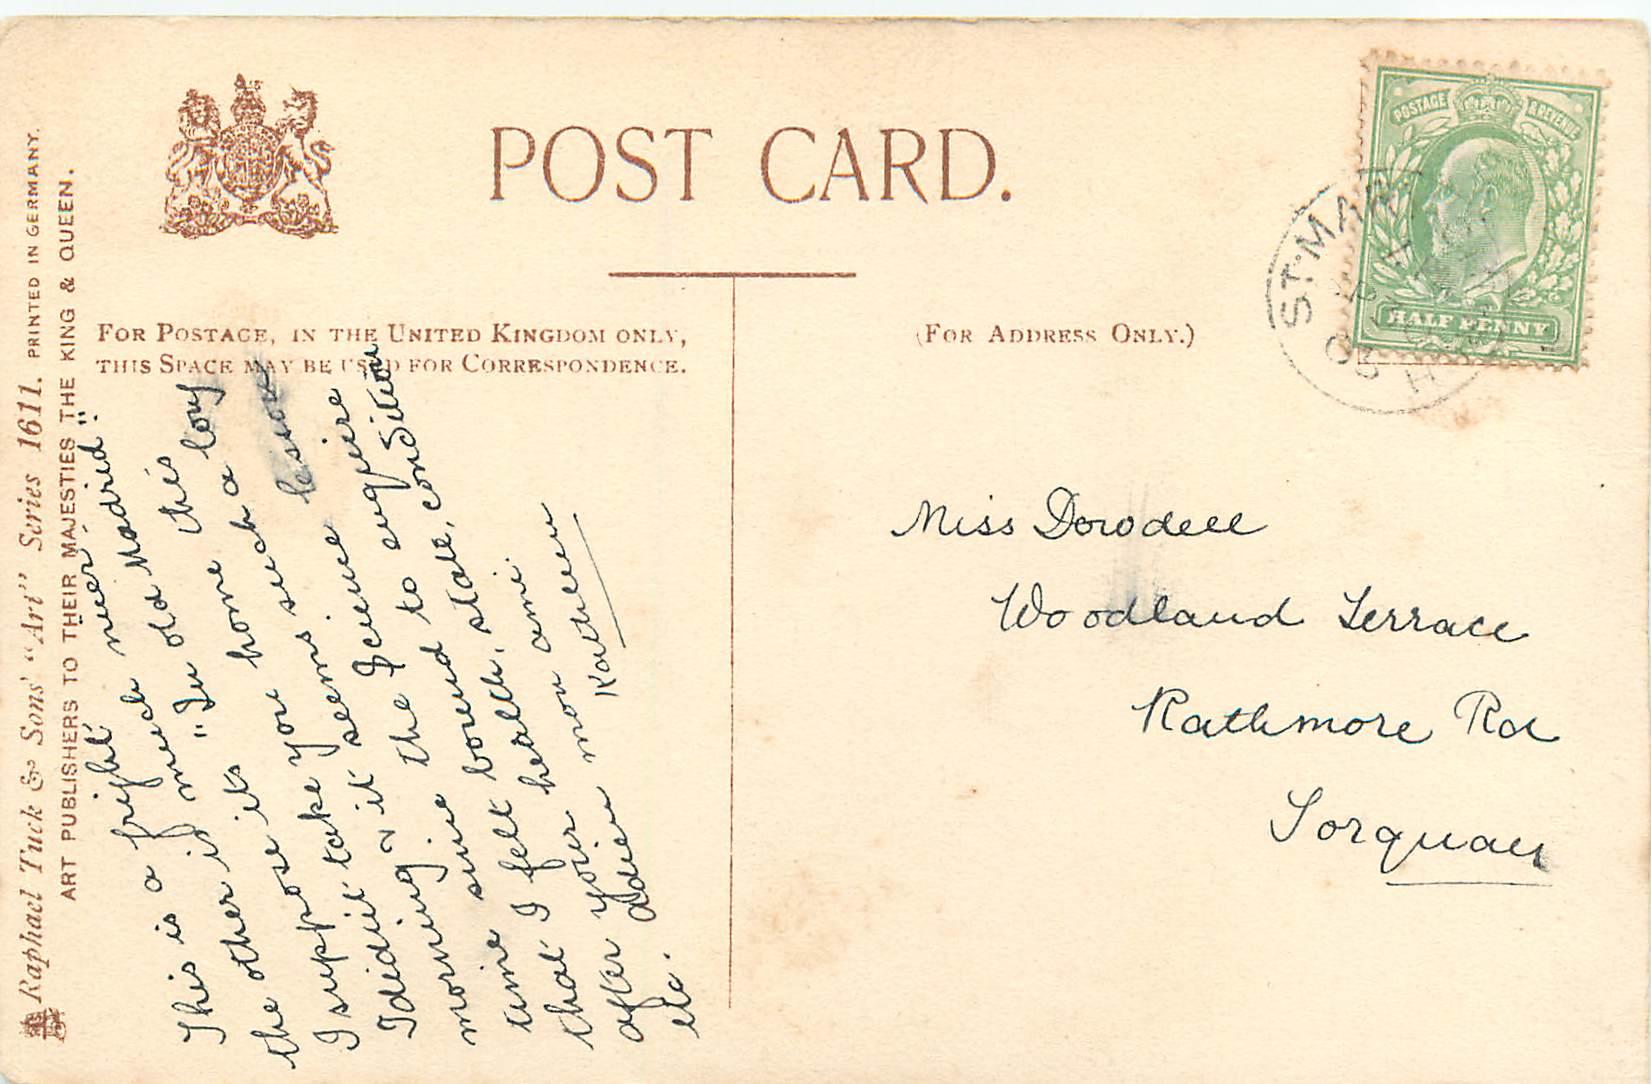 POST CARD.
FOR POSTAGE, IN THE UNITED KINGDOM ONLY,
THIS SPACE MAY BE USED FOR CORRESPONDENCE.
(FOR ADDRESS ONLY.)
Raphael Tuck & Sons' "Art" Series 1611. PRINTED IN GERMANY.
ART PUBLISHERS TO THEIR MAJESTIES THE KING & QUEEN.
POSTAGE & REVENUE
HALF PENNY
ST. MA
This is a fright never Madrid".
the other is much old this
I suppose its "In home a long
I didn't take you such a lesson
morning. it seems. since
time since the I came enquire
that I felt bound to condition
after your health, state,
etc. Adieu mon ami.
Kathleen
Miss Dowdell
Woodland Terrace
Rathmore Rd
Torquay